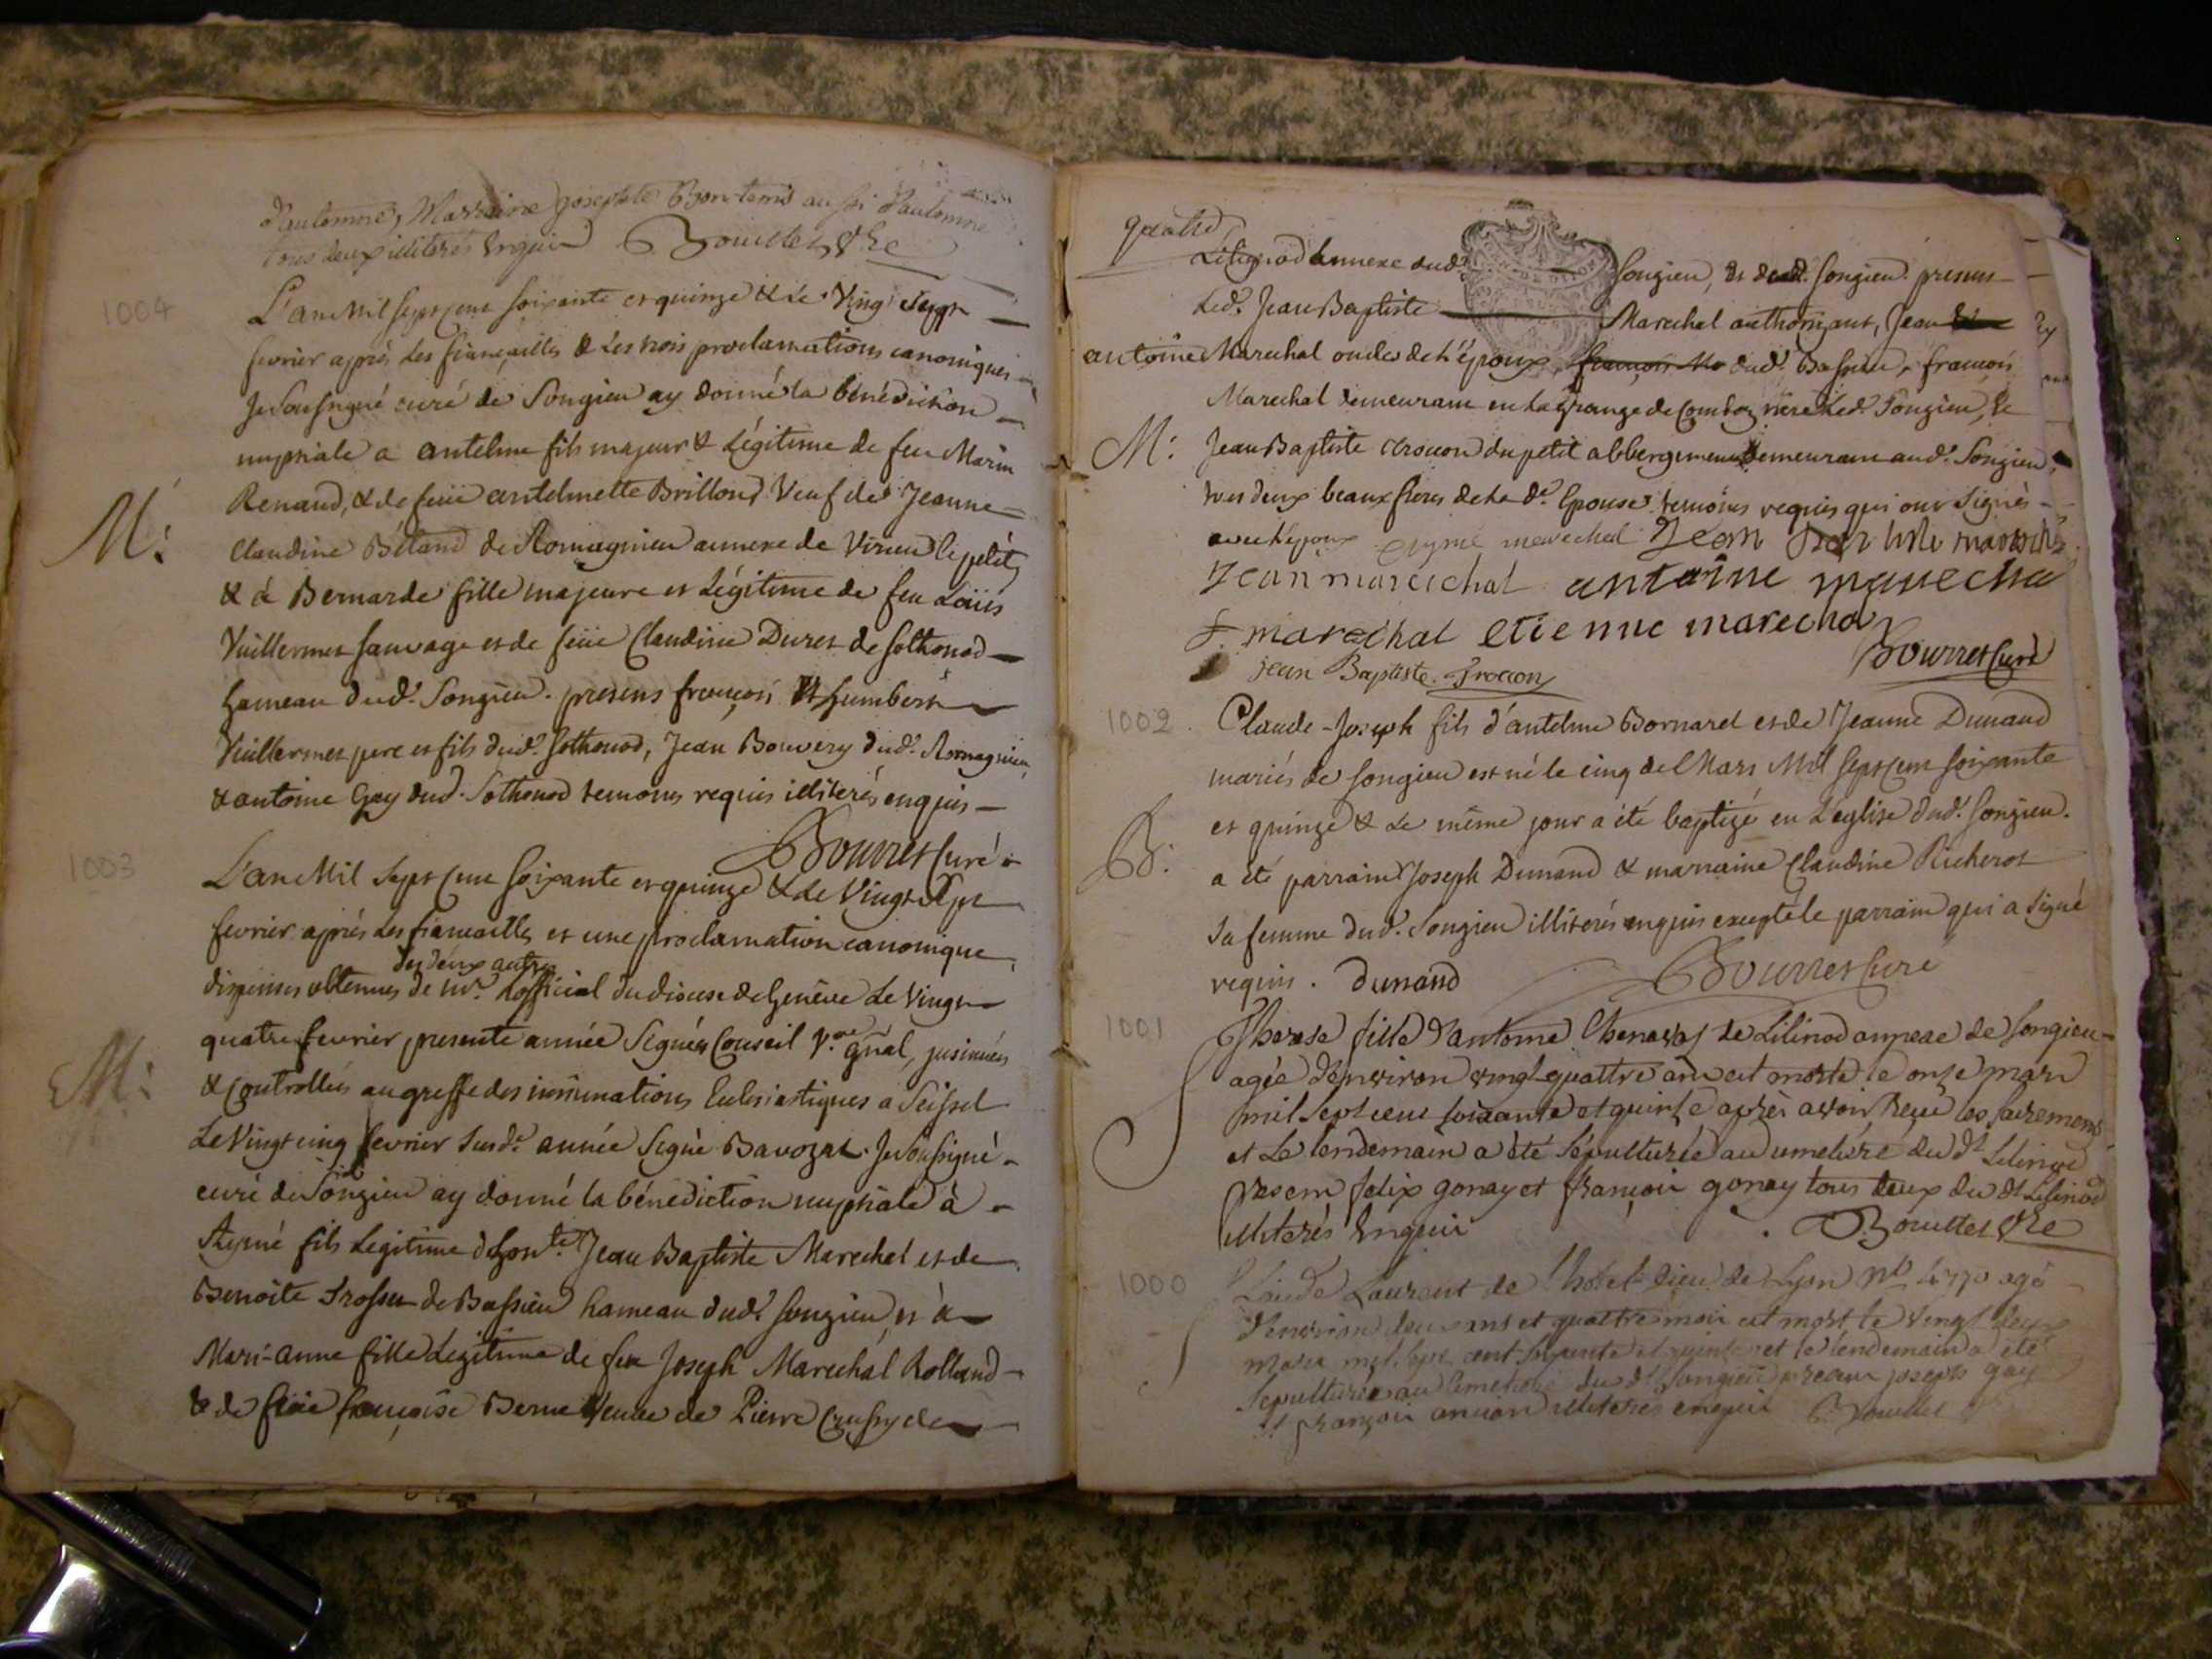 d'autonne, Marraine josephte Bon-tems aussi d'autonne
tous deux illiterés Enquis Bouillet Vre
1004
L'an Mil sept cent soixante et quinze & le Vingt Sept
fevrier aprés les fiançailles & les trois proclamations canoniques
Je Soussigné curé de Songieu ay donné la bénédiction
nuptiale a antelme fils majeur & Légitime de feu Marin
Renaud, & de feüe antelmette Brillond Veuf de Jeanne
M:
Claudine Bétand de Romagnieu annexe de Virieu le petit
& à Bernarde fille majeure et Légitime de feu Loüis
Vuillermet sauvage et de feüe Claudine Duret de sothonod
hameau dud. Songieu. presens françois & humbert
Vuillermet pere et fils dud. sothonod, Jean Bouvery dud. Romagnieu
& antoine Gay dud. Sothonod temoins requis illiterés enquis
Bourret Curé
1003
L'an Mil Sept Cent soixante et quinze & Le Vingt Sept
fevrier aprés les fiançailles et une proclamation canonique,
des deux autres
dispenses obtenues de mr. Lofficial du diocese de Genêve Le Vingt
quatre fevrier presente année Signées Conseil V. gñal, jnsinuées
M:
& Controllées au greffe des insinuations Eclesiastiques a Seissel
Le Vingt cinq fevrier susd. année Signé Bavozat. Je Soussigné
curé de Songieu ay donné la bénédiction nuptiale à
Aymé fils Legitime d'hon.te Jean Baptiste Marechal et de
Benoite Trosset de Bassieu hameau dud. Songieu, et à
Mari-anne fille Légitime de feu Joseph Marechal Rolland
& de feüe françoise Berne Veuve de Pierre Crussy de
quattre
Lilignod annexe dud. Songieu, & dud. Songieu. presens
Led. Jean Baptiste Marechal authorisant, Jean
antoine Marechal oncles de L'époux, françois Ma dud. Bassieu, françois
Marechal demeurant en La grange de Comboz riere Led. Songieu, &
M:
Jean Baptiste Trocon du petit abbergement demeurant aud. Songieu,
tous deux beaux freres de la d. Epouse. temoins requis qui ont Signés
avec L'époux eyme marechal Jean Baptiste marechal
Jean marechal antoine marechal
f. marechal etienne marechal
jean Baptiste. Trocon Bourret Curé
1002
Claude-Joseph fils d'antelme Bornarel et de Jeanne Dunand
mariés de Songieu est né le cinq de Mars Mil Sept Cent soixante
et quinze & Le même jour a été baptizé en L'eglise dud. Songieu.
B:
a été parrain Joseph Dunand & marraine Claudine Richerot
Sa femme dud. Songieu illiterés enquis excepté le parrain qui a signé
requis. Dunand Bourret Curé
1001
S
Therese fille d'antoine Chenavas de Lilinod annexe de Songieu
agée d'environ vingt-quattre ans est morte le onze mars
mil Sept cent soixante et quinze après avoir Reçu les sacremens
et Le lendemain a été Sépulturée au cimetiere du dt Lilinod
Presens felix gonay et françois gonay tous deux du dt Lilinod
illiterés Enquis Bouillet Vre
1000
S
Claude Laurent de l'hotel dieu de Lyon No agé
d'environ deux ans et quattre mois est mort le vingt deux
mars mil Sept cent soixante et quinze et le lendemain a été
Sepulturé au cimetiere du dt Songieu presens joseph gay
et françois ancian illiterés enquis Bouillet